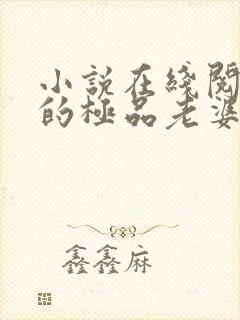 小說在綫閱
的極品老婆
鑫鑫麻